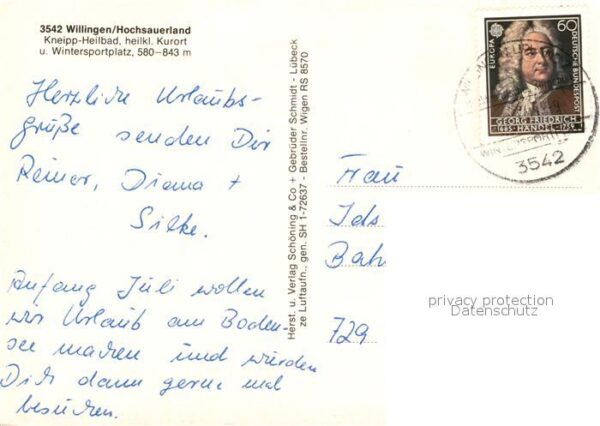 3542 Willingen/Hochsauerland
Kneipp-Heilbad, heilkl. Kurort
u. Wintersportplatz, 580–843 m
Herzliche Urlaubs-
grüße senden Dir
Reiner, Diana +
Silke.
Anfang Juli wollen
wir Urlaub am Boden-
see machen und würden
Dich dann gerne mal
besuchen.
Herst. u. Verlag Schöning & Co + Gebrüder Schmidt - Lübeck
ze Luftaufn., gen. SH 1-72637 - Bestellnr. Wigen RS 8570
EUROPA
60
DEUTSCHE BUNDESPOST
GEORG FRIEDRICH
1685 · HÄNDEL · 1759
3542
Frau
Ids
Bah
729
privacy protection
Datenschutz